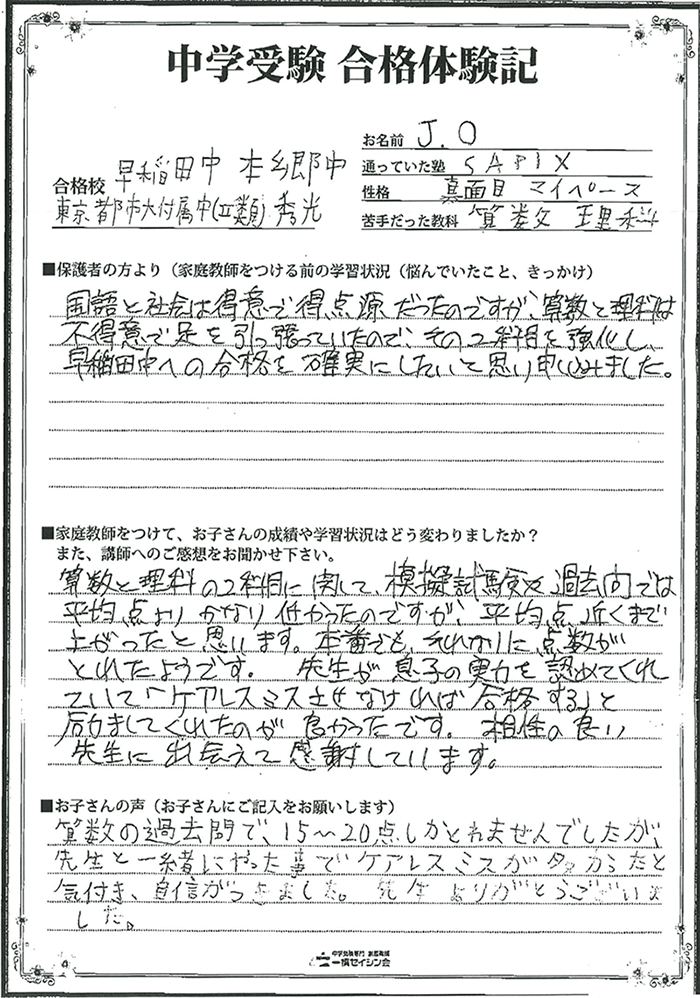 中学受験 合格体験記
お名前 J.O
通っていた塾 SAPIX
性格 真面目 マイペース
苦手だった教科 算数 理科
合格校 早稲田中 本郷中
東京都市大付属中(II類) 秀光
■保護者の方より（家庭教師をつける前の学習状況（悩んでいたこと、きっかけ）
国語と社会は得意で得点源だったのですが、算数と理科は
不得意で足を引っ張っていたので、その2科目を強化し、
早稲田中への合格を確実にしたいと思い申し込みました。
■家庭教師をつけて、お子さんの成績や学習状況はどう変わりましたか？
また、講師へのご感想をお聞かせ下さい。
算数と理科の2科目に関して、模擬試験や過去問では
平均点よりかなり低かったのですが、平均点近くまで
上がったと思います。本番でも、それなりに点数が
とれたようです。 先生が息子の実力を認めてくれ
ていて「ケアレスミスさせなければ合格する」と
励ましてくれたのが良かったです。 相性の良い
先生に出会えて感謝しています。
■お子さんの声（お子さんにご記入をお願いします）
算数の過去問で、15〜20点しかとれませんでしたが、
先生と一緒にやった事でケアレスミスが多かったと
気付き、自信がつきました。先生ありがとうございま
した。
中学受験専門 家庭教師
一橋セイシン会